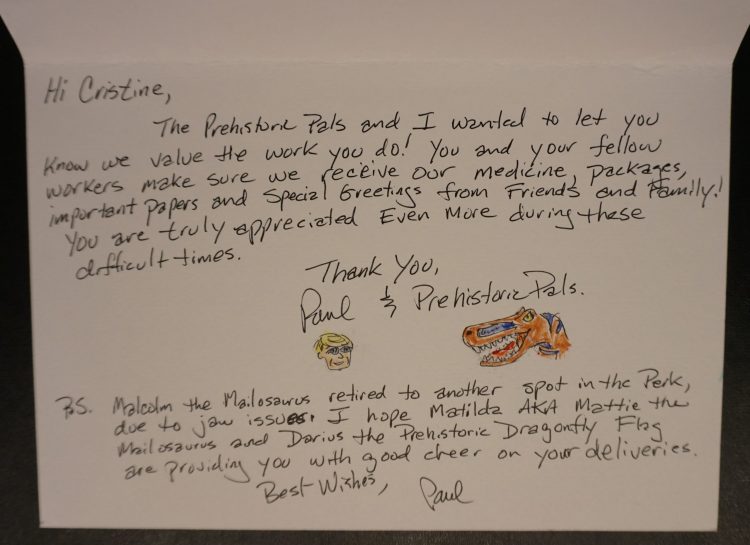 Hi Cristine,
The Prehistoric Pals and I wanted to let you
Know we value the work you do! You and your fellow
workers make sure we receive our medicine, packages,
important Papers and Special Greetings from Friends and Family!
You are truly appreciated Even More during these
difficult times.
Thank You,
Paul & Prehistoric Pals.
P.S. Malcolm the Mailosaurus retired to another spot in the Perk,
due to jaw issues. I hope Matilda AKA Mattie the
Mailosaurus and Darius the Prehistoric Dragonfly Flag
are providing you with good cheer on your deliveries.
Best Wishes, Paul